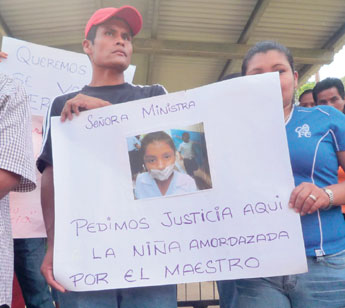 QUEREMOS
SE V
SEÑORA MINISTRA
PEDIMOS JUSTICIA AQUI
LA NIÑA AMORDAZADA
POR EL MAESTRO